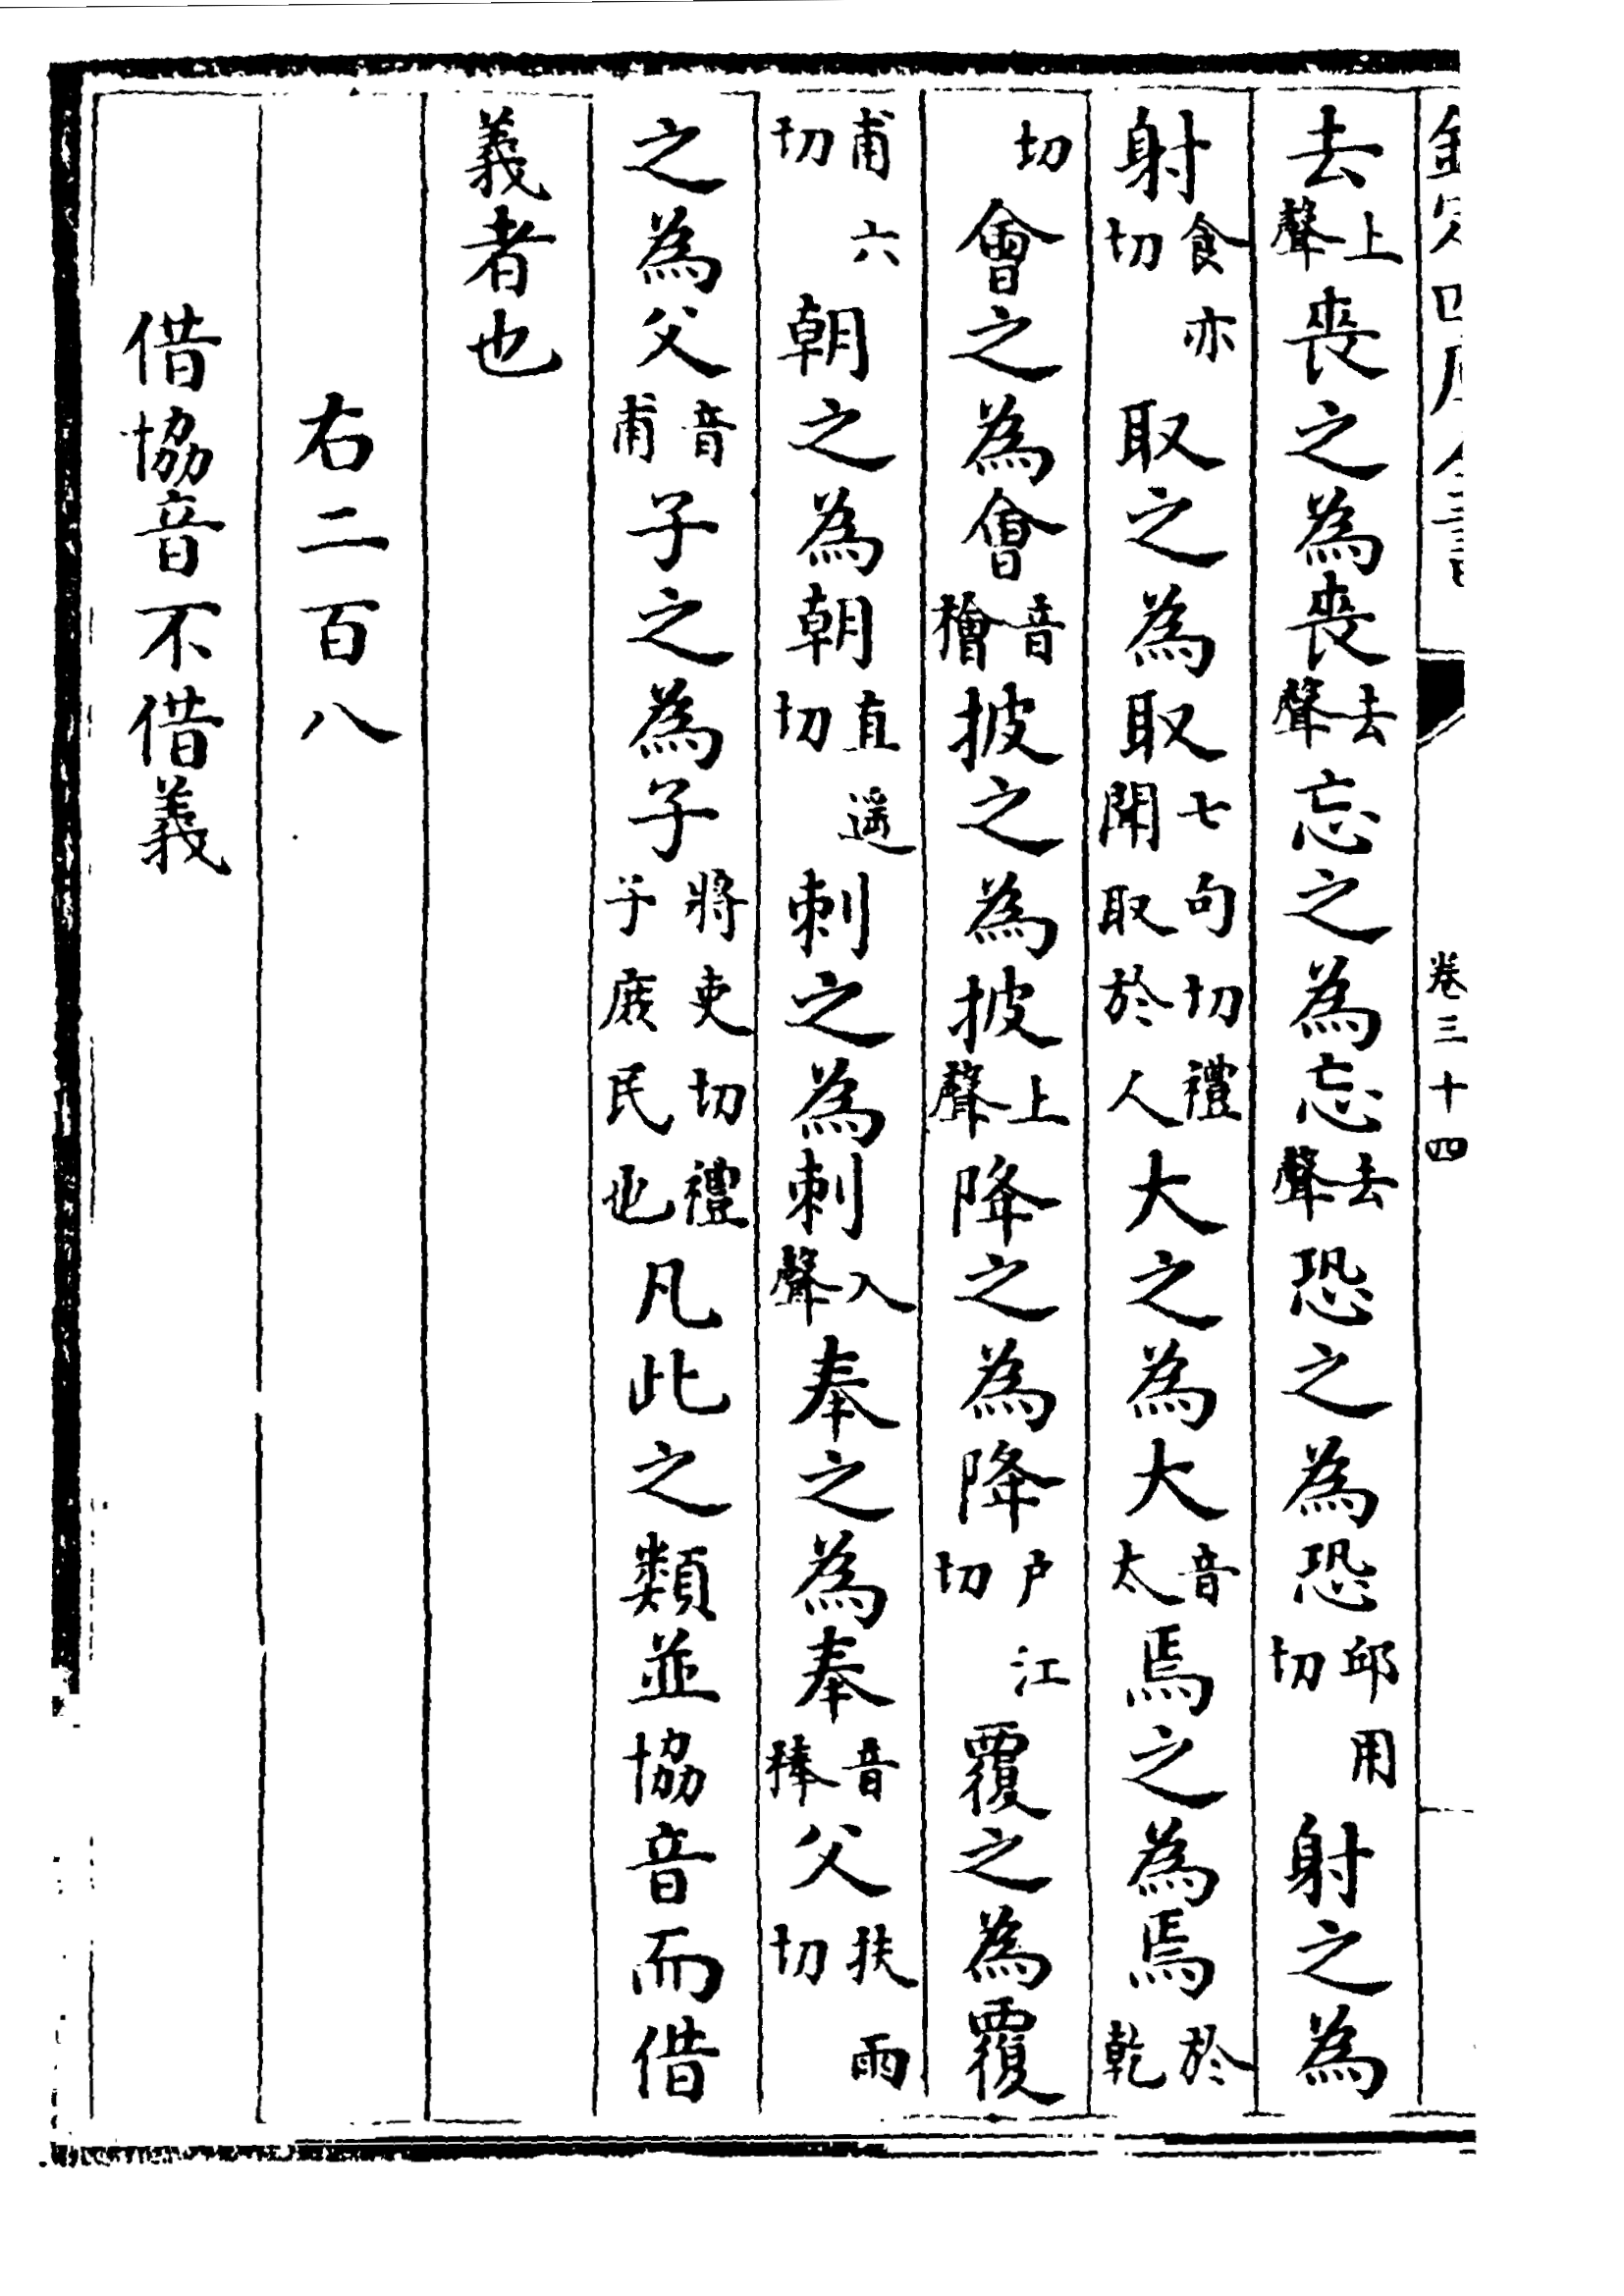 欽定四庫全書 卷三十四
去上聲喪之為喪去聲忘之為忘去聲恐之為恐邱用切射之為
射食亦切取之為取七句切禮聞取於人大之為大音太焉之為焉於乾
切會之為會音檜披之為披上聲降之為降户江切覆之為覆
甫六切朝之為朝直遥切刺之為刺入聲奉之為奉音捧父扶雨切
之為父音甫子之為子將吏切禮子庻民也凡此之類並協音而借
義者也
右二百八
借協音不借義